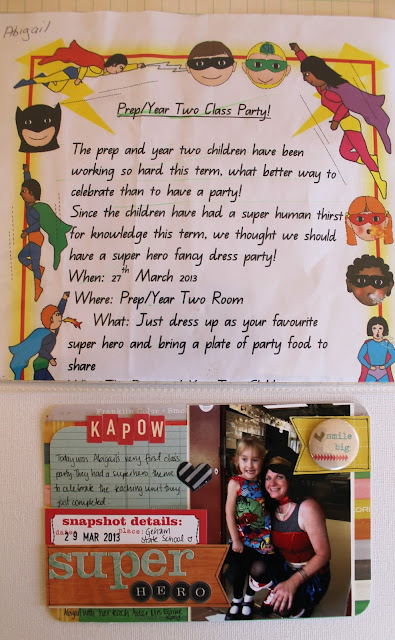 Abigail
Prep/Year Two Class Party!
The prep and year two children have been
working so hard this term, what better way to
celebrate than to have a party!
Since the children have had a super human thirst
for knowledge this term, we thought we should
have a super hero fancy dress party!
When: 27th March 2013
Where: Prep/Year Two Room
What: Just dress up as your favourite
super hero and bring a plate of party food to
share
KAPOW
Today was Abigail's very first class
party. They had a superhero theme
to celebrate the teaching unit they
just completed.
smile
big
snapshot details:
date: 2 9 MAR 2013 place: Geham
State School
super
HERO
Abigail with her